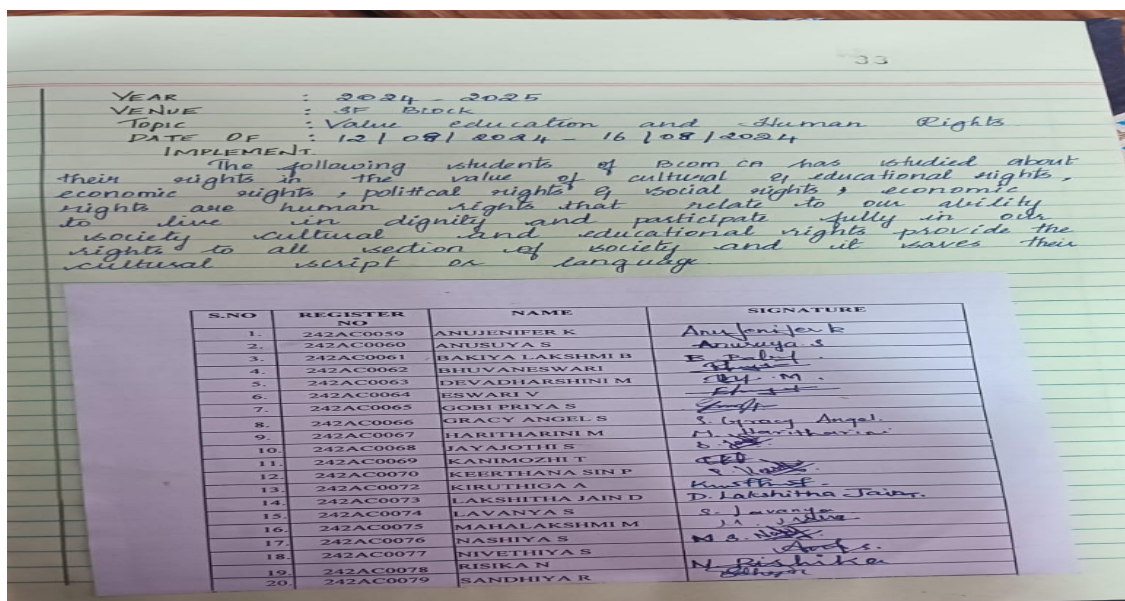 33
YEAR : 2024 - 2025
VENUE : SF Block
Topic : Value education and Human Rights
DATE OF : 12/08/2024 - 16/08/2024
IMPLEMENT.
The following students of Bcom CA has studied about
their rights in the value of cultural & educational rights,
economic rights, political rights & social rights, economic
rights are human rights that relate to our ability
to live in dignity and participate fully in our
society cultural and educational rights provide the
rights to all section of society and it saves their
cultural script or language
S.NO REGISTER NO NAME SIGNATURE
1. 242AC0059 ANUJENIFER K Anujenifer k
2. 242AC0060 ANUSUYA S Anusuya.S
3. 242AC0061 BAKIYA LAKSHMI B
4. 242AC0062 BHUVANESWARI
5. 242AC0063 DEVADHARSHINI M
6. 242AC0064 ESWARI V
7. 242AC0065 GOBI PRIYA S
8. 242AC0066 GRACY ANGEL S S. Gracy Angel.
9. 242AC0067 HARITHARINI M M. Haritharini
10. 242AC0068 JAYAJOTHI S
11. 242AC0069 KANIMOZHI T
12. 242AC0070 KEERTHANA SIN P
13. 242AC0072 KIRUTHIGA A
14. 242AC0073 LAKSHITHA JAIN D D. Lakshitha Jain.
15. 242AC0074 LAVANYA S S. Lavanya
16. 242AC0075 MAHALAKSHMI M
17. 242AC0076 NASHIYA S
18. 242AC0077 NIVETHIYA S
19. 242AC0078 RISIKA N N. Rishika
20. 242AC0079 SANDHIYA R